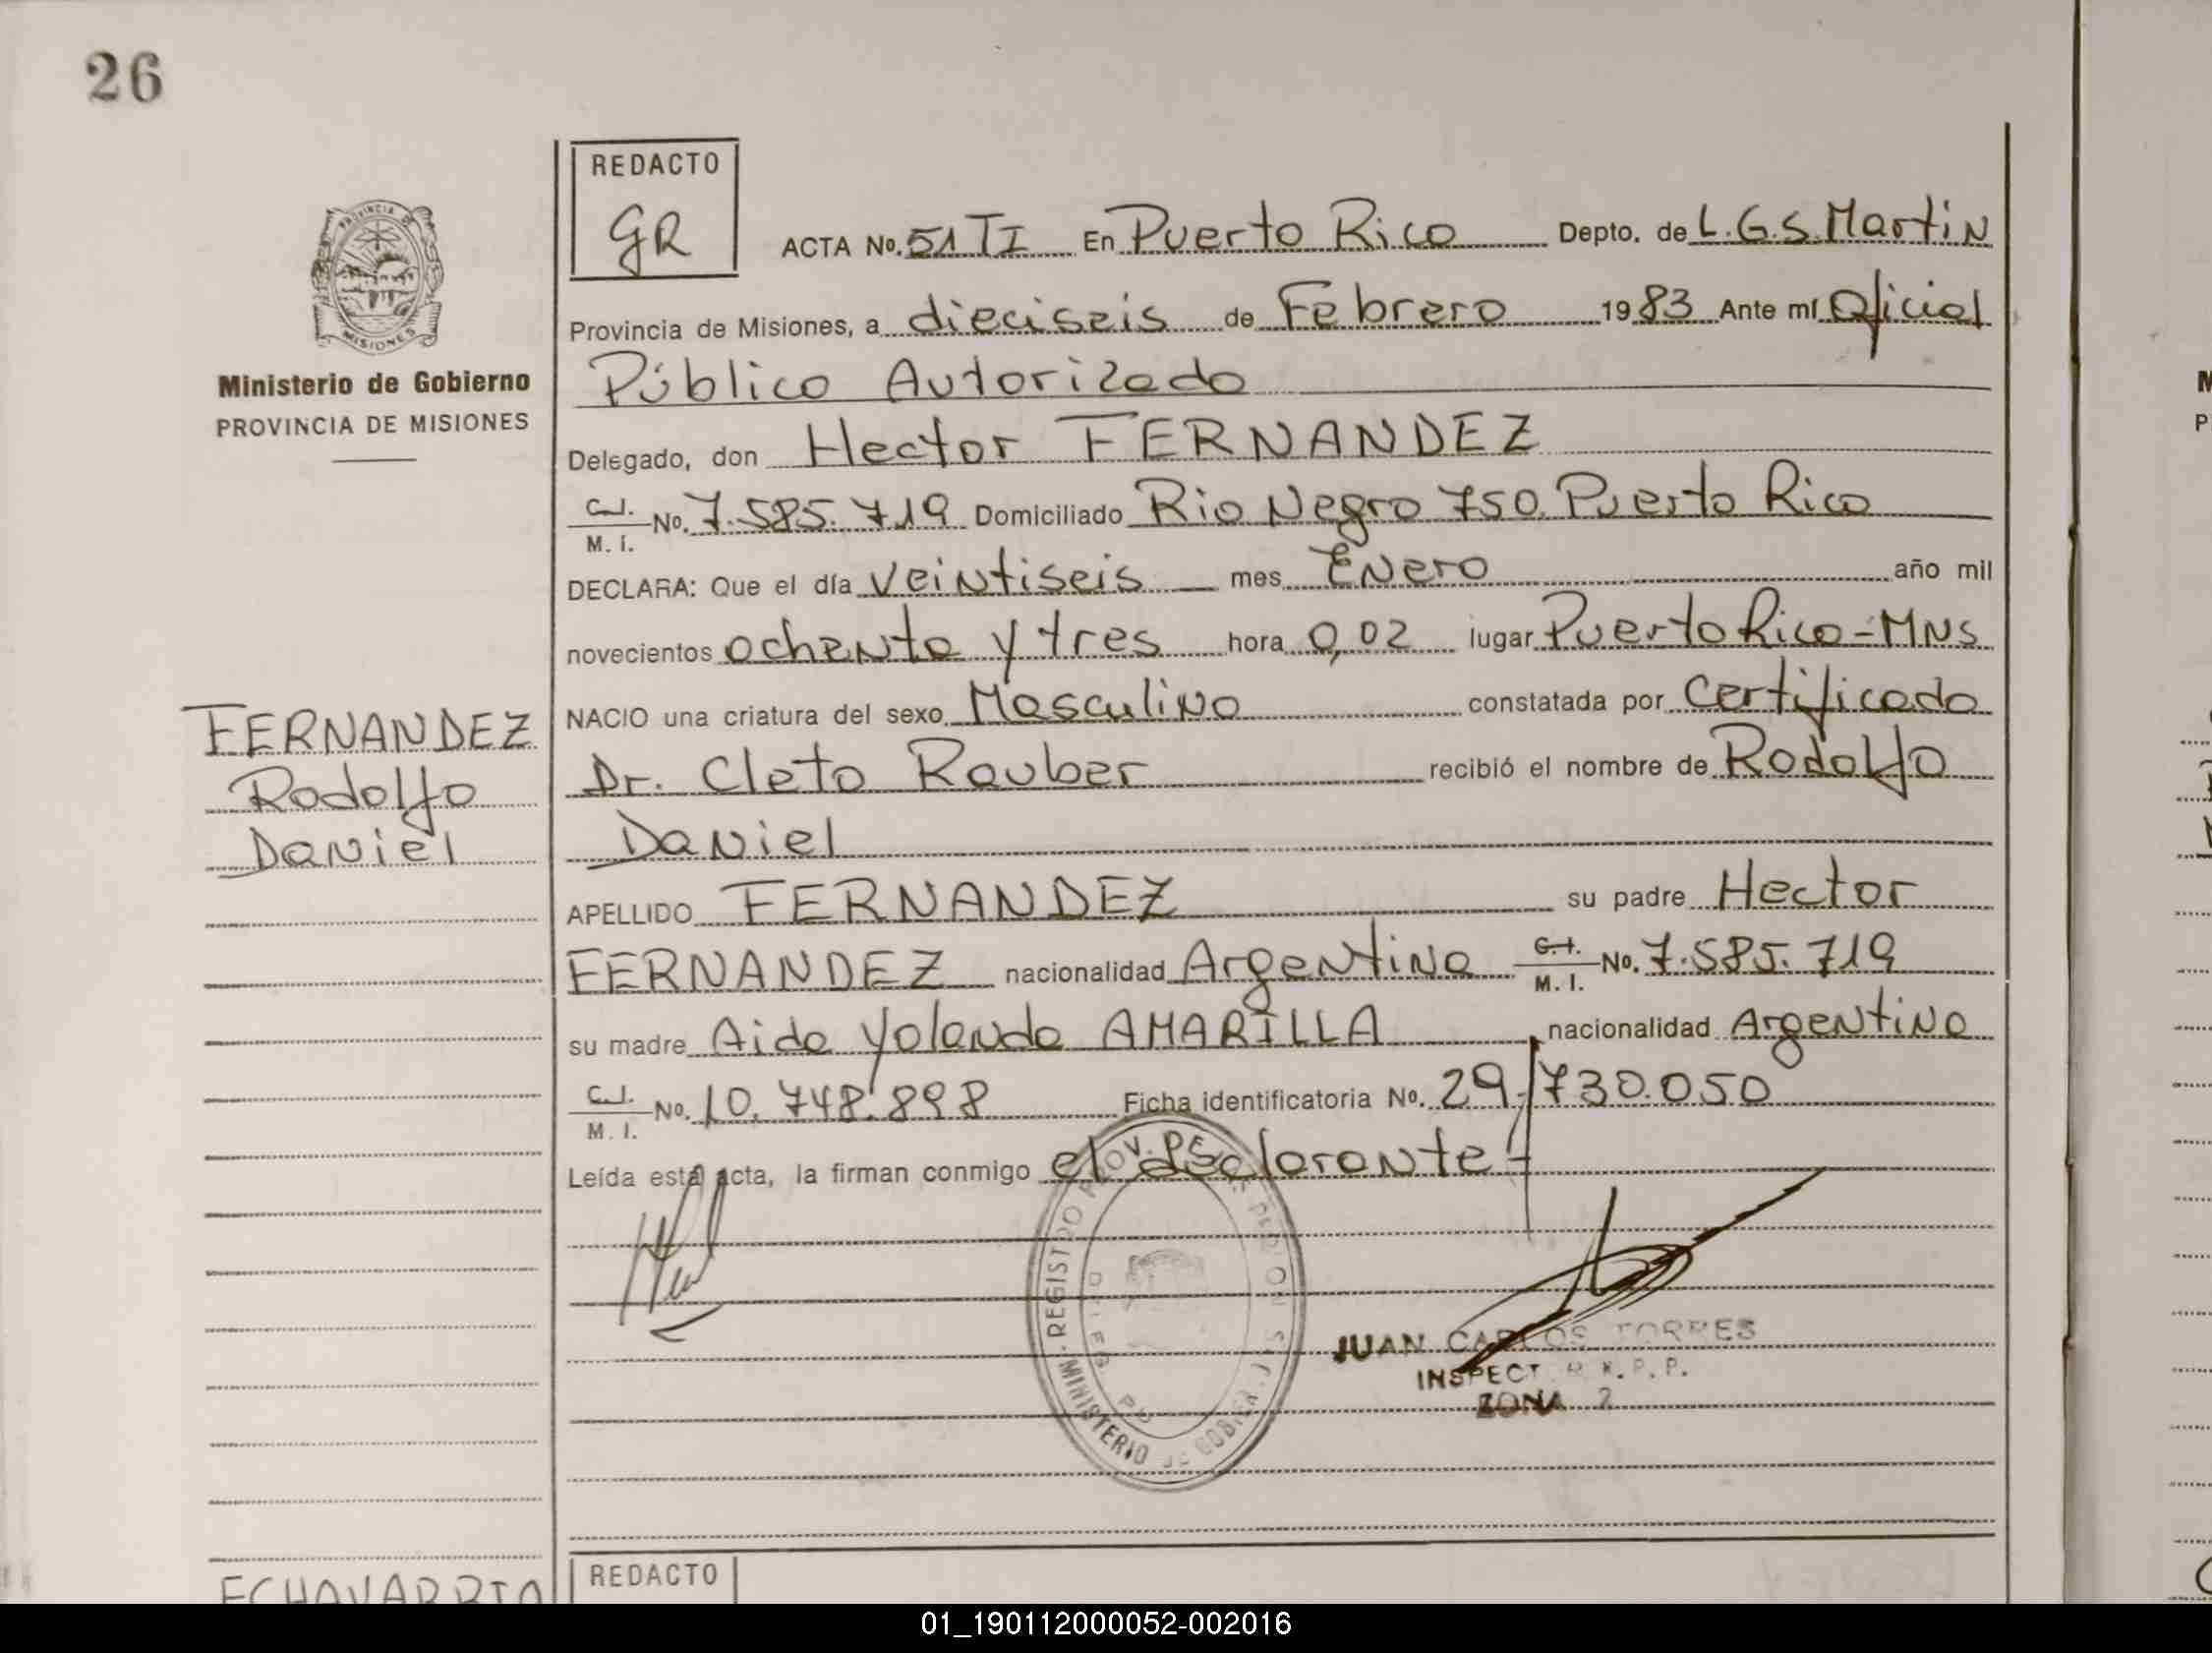 26
REDACTO
GR
PROVINCIA DE
MISIONES
Ministerio de Gobierno
PROVINCIA DE MISIONES
ACTA No. 51 TI En Puerto Rico Depto. de L.G.S. Martin
Provincia de Misiones, a dieciseis de Febrero 1983 Ante mí Oficial
Público Autorizado
Delegado, don Hector FERNANDEZ
C.I.
M. I. No. 7.585.719 Domiciliado Rio Negro 750. Puerto Rico
DECLARA: Que el día veintiseis mes Enero año mil
novecientos ochenta y tres hora 0,02 lugar Puerto Rico - MNS
NACIO una criatura del sexo Masculino constatada por Certificado
Dr. Cleto Rauber recibió el nombre de Rodolfo
Daniel
APELLIDO FERNANDEZ su padre Hector
FERNANDEZ nacionalidad Argentina C.I.
M. I. No. 7.585.719
su madre Aida Yolanda AMARILLA nacionalidad Argentina
C.I.
M. I. No. 10.748.898 Ficha identificatoria No. 29.730.050
Leída esta acta, la firman conmigo el declarante
FERNANDEZ
Rodolfo
Daniel
REGISTRO PROV. DE
MINISTERIO DE GOBIER
JUAN CARLOS TORRES
INSPECTOR R.P.P.
ZONA 2
ECHAVARRIA
REDACTO
01_190112000052-002016